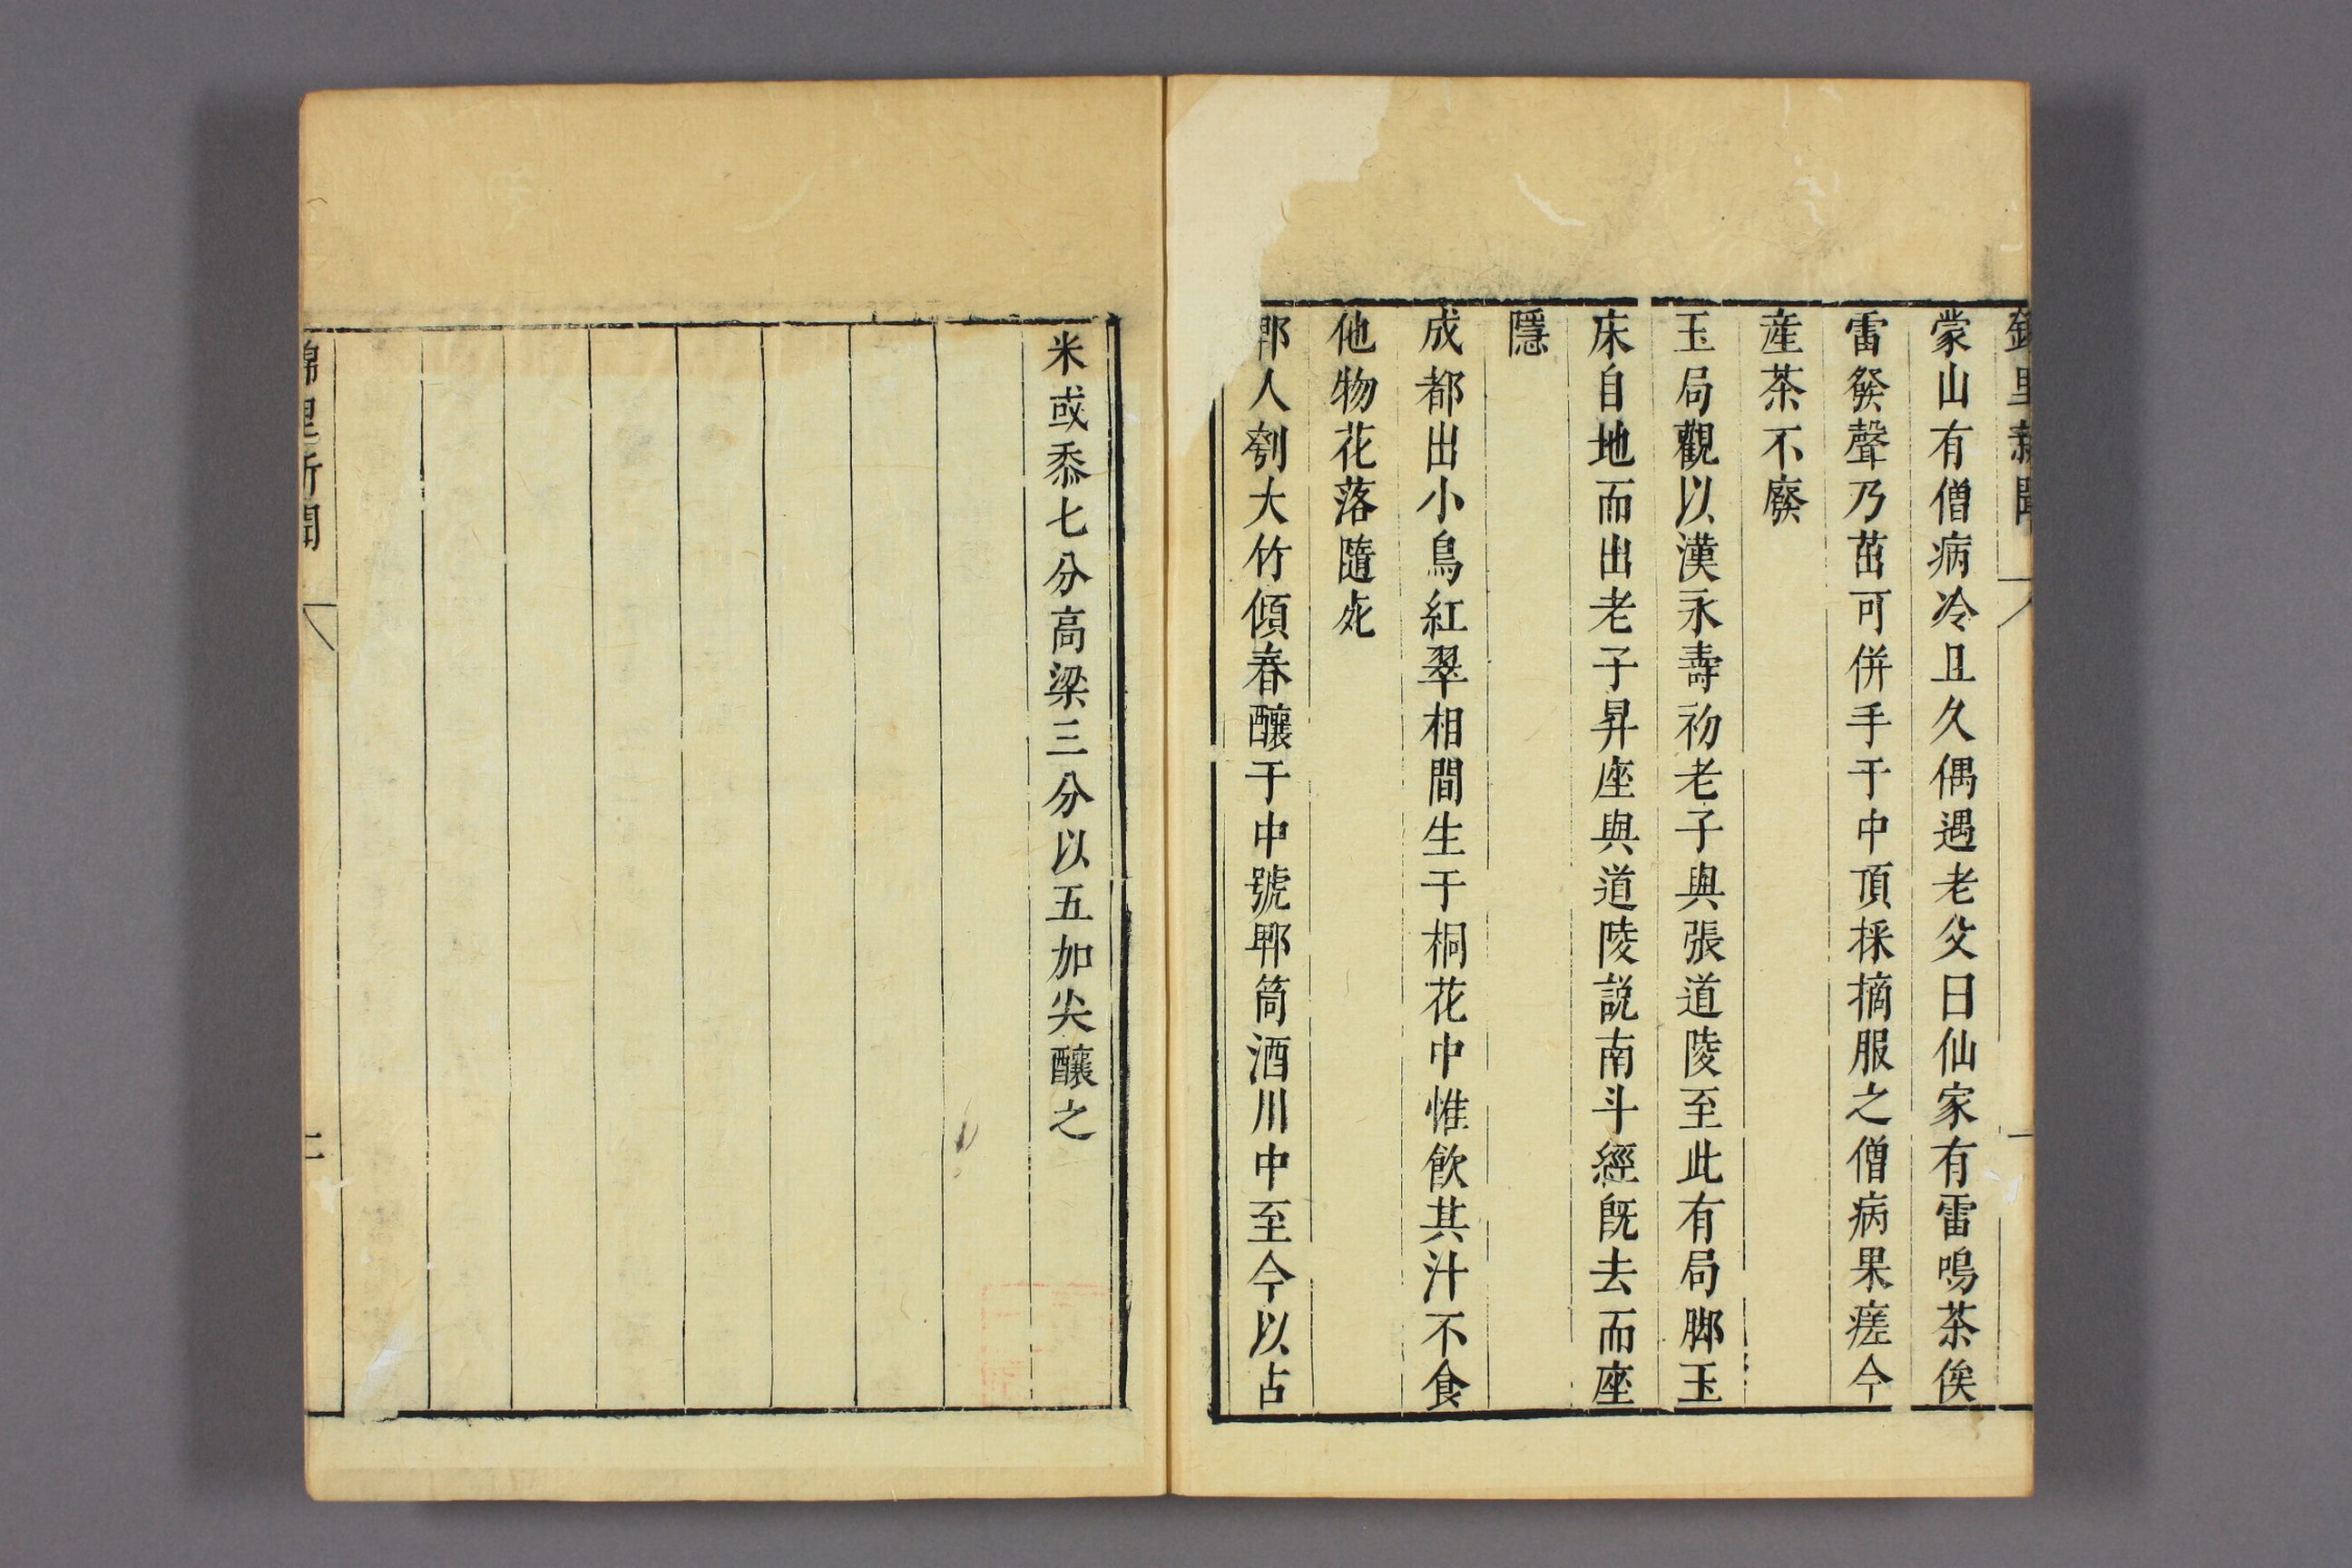 錦里新聞
蒙山有僧病冷且久偶遇老父曰仙家有雷鳴茶俟
雷發聲乃茁可併手于中頂採摘服之僧病果瘥今
產茶不廢
玉局觀以漢永壽初老子與張道陵至此有局脚玉
床自地而出老子昇座與道陵説南斗經旣去而座
隱
成都出小鳥紅翠相間生于桐花中惟飮其汁不食
他物花落隨死
郫人刳大竹傾春釀于中號郫筒酒川中至今以占
米或黍七分高梁三分以五加尖釀之
錦里新聞
二